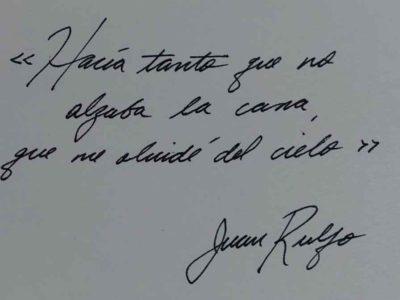 «Hacía tanto que no
alzaba la cara,
que me olvidé del cielo»
Juan Rulfo